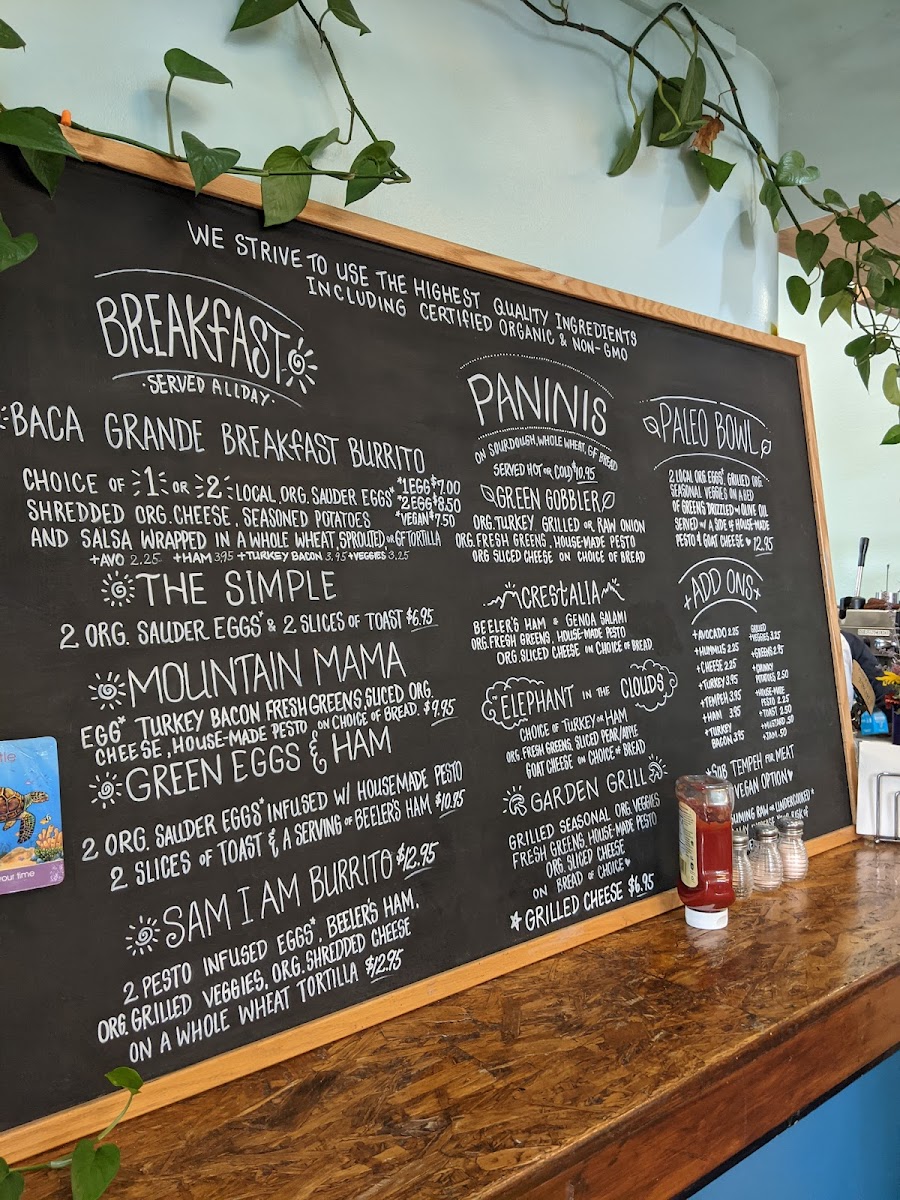 WE STRIVE TO USE THE HIGHEST QUALITY INGREDIENTS
INCLUDING CERTIFIED ORGANIC & NON-GMO
BREAKFAST
·SERVED ALL DAY·
BACA GRANDE BREAKFAST BURRITO
CHOICE OF 1 OR 2 LOCAL, ORG. SAUDER EGGS*
SHREDDED ORG. CHEESE, SEASONED POTATOES
AND SALSA WRAPPED IN A WHOLE WHEAT, SPROUTED OR GF TORTILLA
*1 EGG $7.00
*2 EGG $8.50
*VEGAN $7.50
+AVO 2.25 +HAM 3.95 +TURKEY BACON 3.95 +VEGGIES 3.25
THE SIMPLE
2 ORG. SAUDER EGGS* & 2 SLICES OF TOAST $6.95
MOUNTAIN MAMA
EGG* TURKEY BACON FRESH GREENS, SLICED ORG.
CHEESE, HOUSE-MADE PESTO ON CHOICE OF BREAD. $9.95
GREEN EGGS & HAM
2 ORG. SAUDER EGGS* INFUSED W/ HOUSEMADE PESTO
2 SLICES OF TOAST & A SERVING OF BEELER'S HAM $10.95
SAM I AM BURRITO $12.95
2 PESTO INFUSED EGGS*, BEELER'S HAM,
ORG. GRILLED VEGGIES, ORG. SHREDDED CHEESE
ON A WHOLE WHEAT TORTILLA $12.95
PANINIS
ON SOURDOUGH, WHOLE WHEAT, GF BREAD
SERVED HOT OR COLD $10.95
GREEN GOBBLER
ORG. TURKEY, GRILLED OR RAW ONION
ORG. FRESH GREENS, HOUSE-MADE PESTO
ORG SLICED CHEESE ON CHOICE OF BREAD
CRESTALIA
BEELER'S HAM & GENOA SALAMI
ORG. FRESH GREENS, HOUSE-MADE PESTO
ORG. SLICED CHEESE ON CHOICE OF BREAD
ELEPHANT IN THE CLOUDS
CHOICE OF TURKEY OR HAM
ORG. FRESH GREENS, SLICED PEAR/APPLE
GOAT CHEESE ON CHOICE OF BREAD
GARDEN GRILL
GRILLED SEASONAL ORG. VEGGIES
FRESH GREENS, HOUSE-MADE PESTO
ORG. SLICED CHEESE
ON BREAD OF CHOICE
GRILLED CHEESE $6.95
PALEO BOWL
2 LOCAL ORG EGGS*, GRILLED ORG
SEASONAL VEGGIES ON A BED
OF GREENS DRIZZLED W/ OLIVE OIL
SERVED W/ A SIDE OF HOUSE-MADE
PESTO & GOAT CHEESE 12.95
+ADD ONS+
+AVOCADO 2.25
+HUMMUS 2.25
+CHEESE 2.25
+TURKEY 3.95
+TEMPEH 3.95
+HAM 3.95
+TURKEY
BACON 3.95
GRILLED
VEGGIES 3.25
+GREENS 2.95
+CHUNKY
POTATOES 2.50
+HOUSE-MADE
PESTO 2.25
+TOAST 2.50
+MUSTARD .50
+JAM .50
SUB TEMPEH FOR MEAT
VEGAN OPTION
RAW OR UNDERCOOKED*
RISK OF
your time